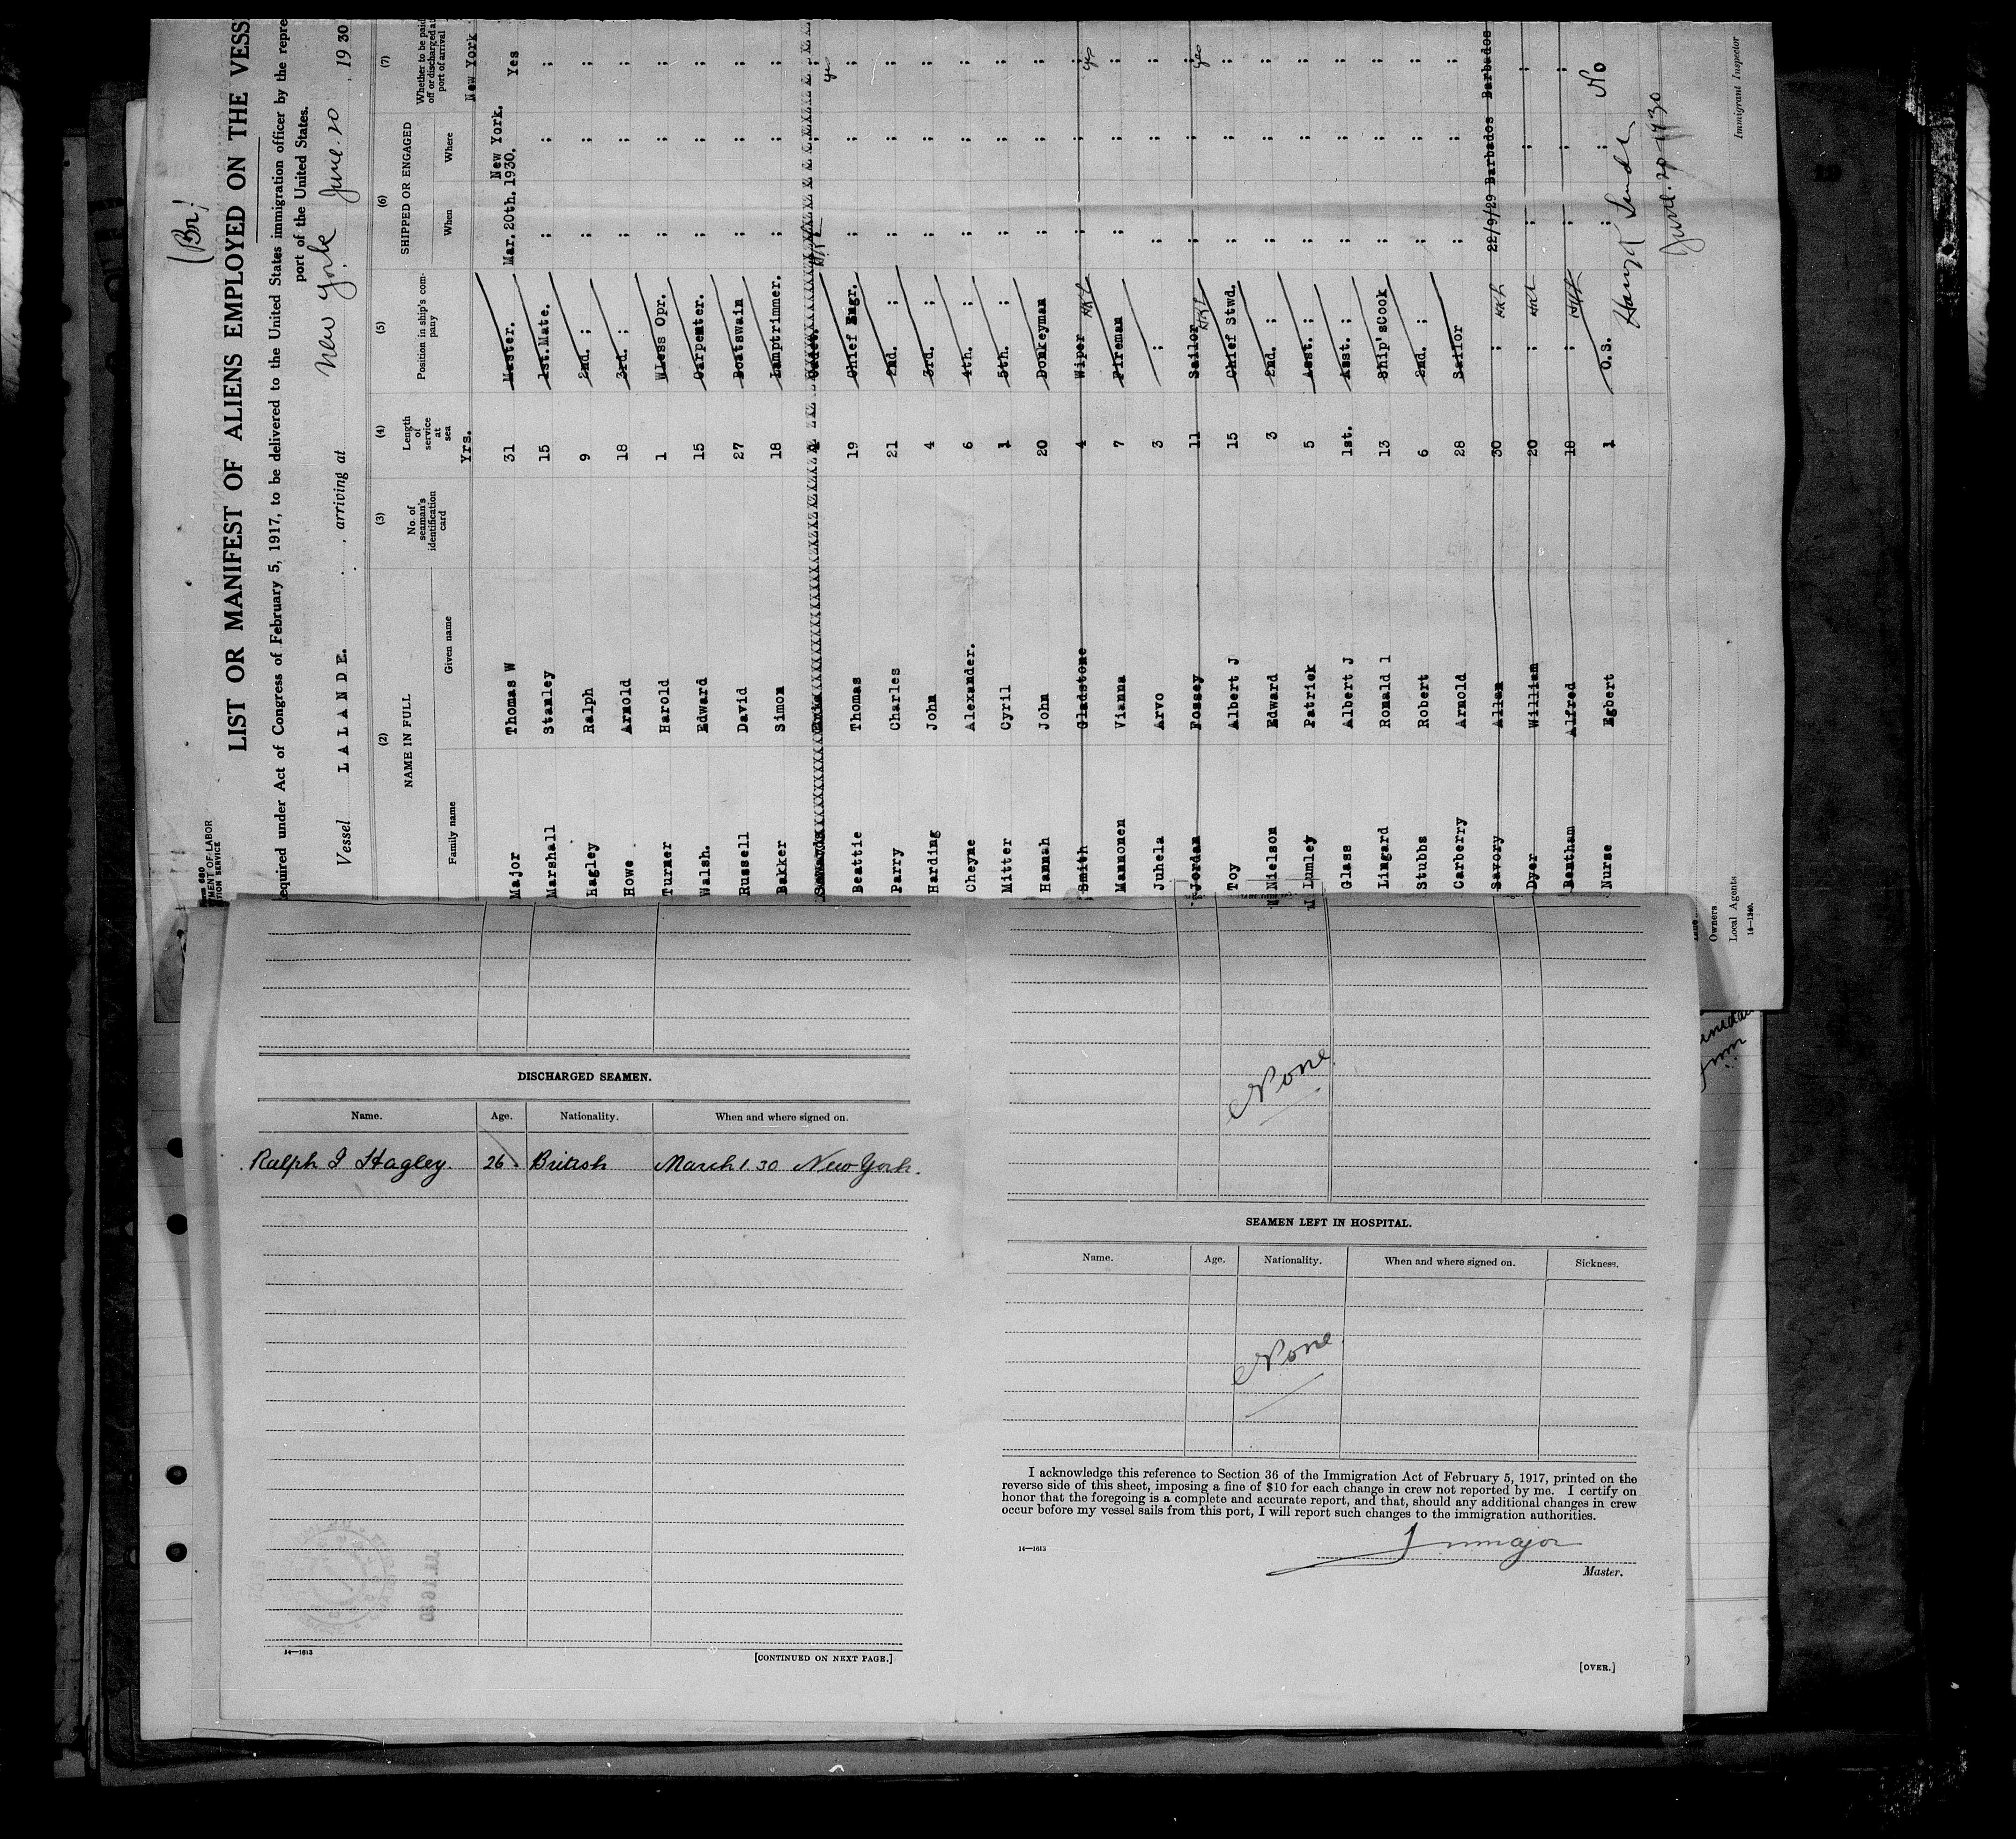 (Br)
680
MENT OF LABOR
TION SERVICE
LIST OR MANIFEST OF ALIENS EMPLOYED ON THE VESS
equired under Act of Congress of February 5, 1917, to be delivered to the United States immigration officer by the repre
port of the United States.
Vessel LALANDE. arriving at New York June 20, 1930
(2) (3) (4) (5) (6) (7)
NAME IN FULL No. of seaman's identification card Length of service at sea Position in ship's company SHIPPED OR ENGAGED Whether to be paid off or discharged at port of arrival
Family name Given name When Where
Yrs. New York
Major Thomas W 31 Master. Mar. 20th. 1930. New York. Yes
Marshall Stanley 15 1st. Mate. : : :
Hagley Ralph 9 2nd. : : : :
Howe Arnold 18 3rd. : : : :
Turner Harold 1 WLess Opr. : : :
Walsh. Edward 15 Carpenter. : : :
Russell David 27 Boatswain : : :
Bakker Simon 18 Lamptrimmer. : : :
Beattie Thomas 19 Chief Engr. : : :
Parry Charles 21 2nd. : : : :
Harding John 4 3rd. : : : :
Cheyne Alexander. 6 4th. : : : :
Mitter Cyril 1 5th. : : : :
Hannah John 20 Donkeyman : : :
Smith Gladstone 4 Wiper : : : yes
Mannonen Vianna 7 Fireman : : :
Juhela Arvo 3 : : : :
Jordan Fossey 11 Sailor : : : yes
Toy Albert J 15 Chief Stwd. : : :
Nielson Edward 3 2nd. : : : :
Lumley Patrick 5 Asst. : : : :
Glass Albert J 1st. Asst. : : : :
Lingard Ronald l 13 Ship'sCook : : :
Stubbs Robert 6 2nd. : : : :
Carberry Arnold 28 Sailor : : :
Savory Allen 30 : 22/9/29 Barbados Barbados
Dyer William 20 : : : :
Bentham Alfred 18 : : : :
Nurse Egbert 1 O.S. : : No
June. 20 1930
Immigrant Inspector
Owners
Local Agents
14—1240.
DISCHARGED SEAMEN.
Name. Age. Nationality. When and where signed on.
Ralph I Hagley. 26. British March 1 30 New York.
14—1613
[CONTINUED ON NEXT PAGE.]
None
SEAMEN LEFT IN HOSPITAL.
Name. Age. Nationality. When and where signed on. Sickness.
None
I acknowledge this reference to Section 36 of the Immigration Act of February 5, 1917, printed on the
reverse side of this sheet, imposing a fine of $10 for each change in crew not reported by me. I certify on
honor that the foregoing is a complete and accurate report, and that, should any additional changes in crew
occur before my vessel sails from this port, I will report such changes to the immigration authorities.
14—1613
Master.
[OVER.]